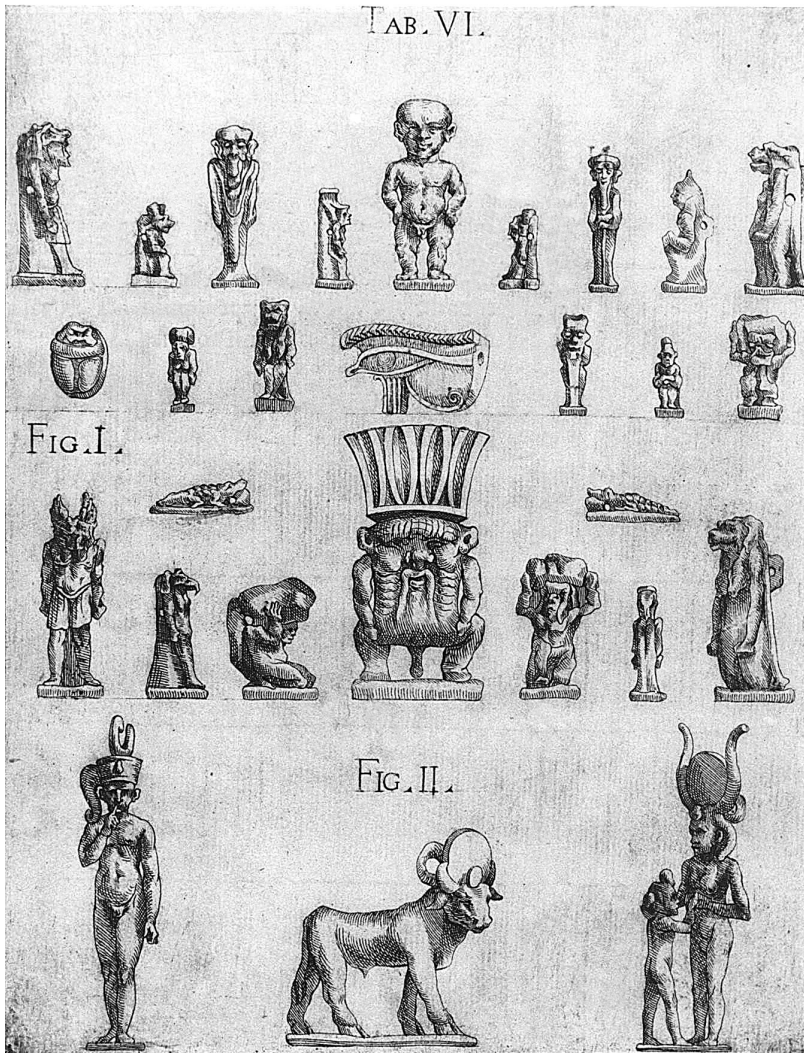 TAB. VI.
FIG. I.
FIG. II.